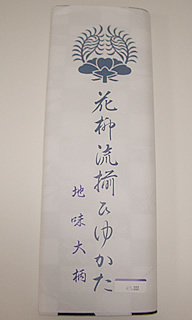 花柳流揃ひゆかた
地味大柄